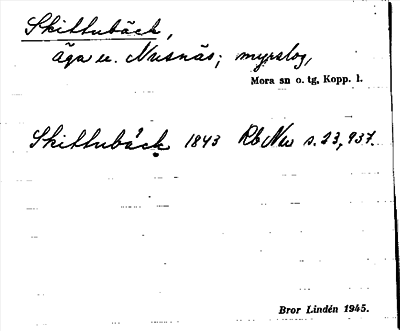 Skittubäck,
äga u. Nusnäs; myrslog,
Mora sn o. tg, Kopp. l.
Skittubäck 1843 Rb Nus s. 23, 937.
Bror Lindén 1945.